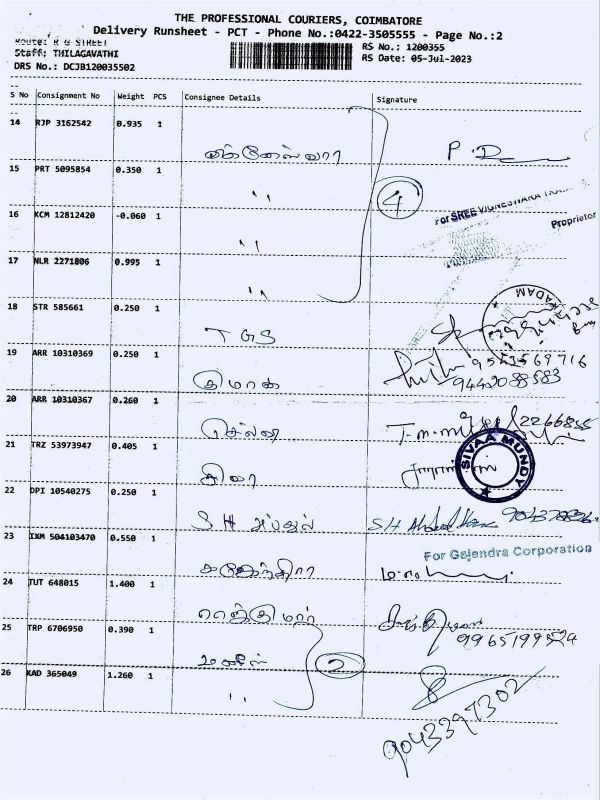 THE PROFESSIONAL COURIERS, COIMBATORE
Delivery Runsheet - PCT - Phone No.:0422-3505555 - Page No.:2
Route: R G STREET
Staff: THILAGAVATHI
DRS No.: DCJB120035502
RS No.: 1200355
RS Date: 05-Jul-2023
S No Consignment No Weight PCS Consignee Details Signature
14 RJP 3162542 0.935 1
15 PRT 5095854 0.350 1 ,,
4
16 KCM 12812420 -0.060 1 ,,
For SREE VIGNESWARA
Proprietor
17 NLR 2271806 0.995 1 ,,
18 STR 585661 0.250 1 TGS
19 ARR 10310369 0.250 1
9442088583
20 ARR 10310367 0.260 1 செல்வி
21 TRZ 53973947 0.405 1
SIVAA MUNDY
22 DPI 10540275 0.250 1 SH அப்துல் SH
23 IXM 504103470 0.550 1 கஜேந்திரா
For Gajendra Corporation
24 TUT 648015 1.400 1
25 TRP 6706950 0.390 1
9965199524
2
26 KAD 365049 1.260 1 ,,
9043397302